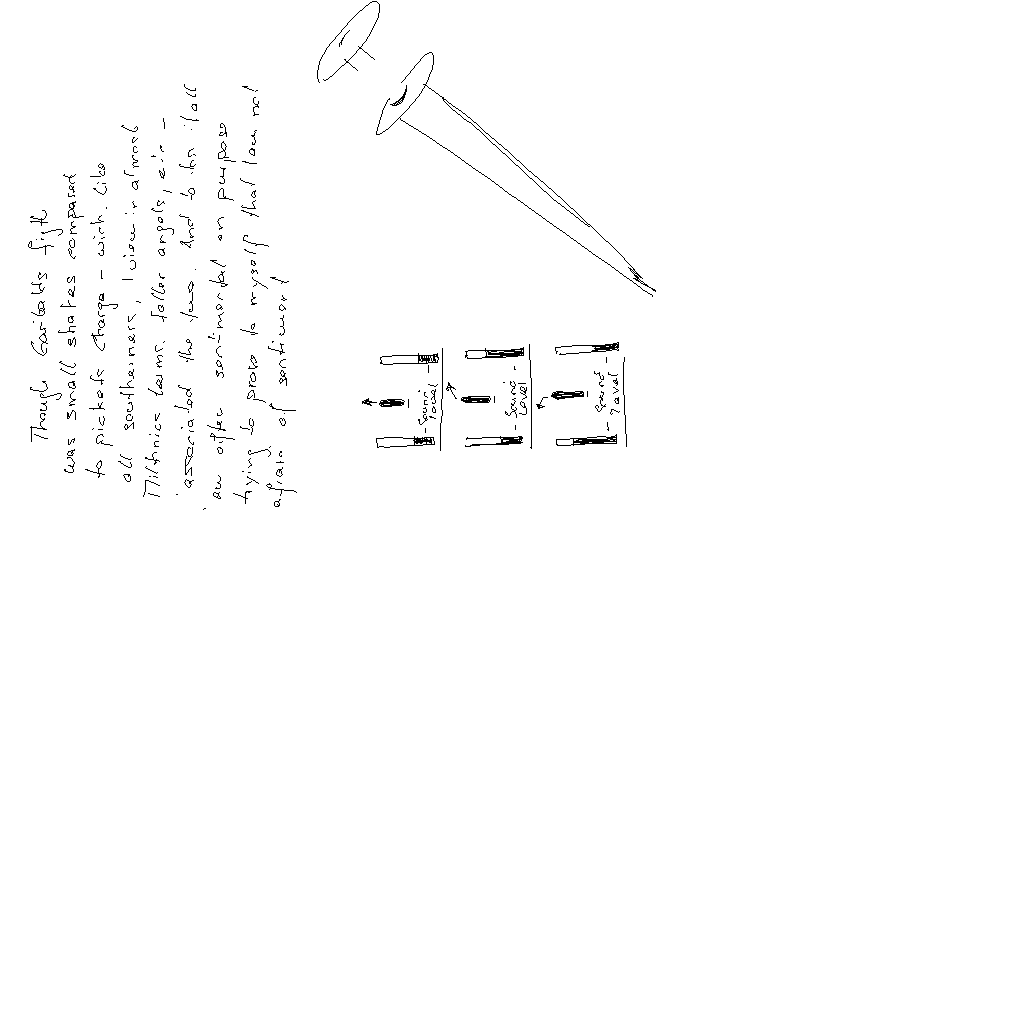 Though Garibalts figth
was small shates compared
to pickets charge - wich. Like
all southerners, I view in almost
Miltinics terms. faller angels, eie -
associated the two. And to tin it all
am offer sentimental on purpose
trying to prove to myself that I am not
afraid of sentiment
- Sound -
level
- Sound -
Level
- Sound -
Level